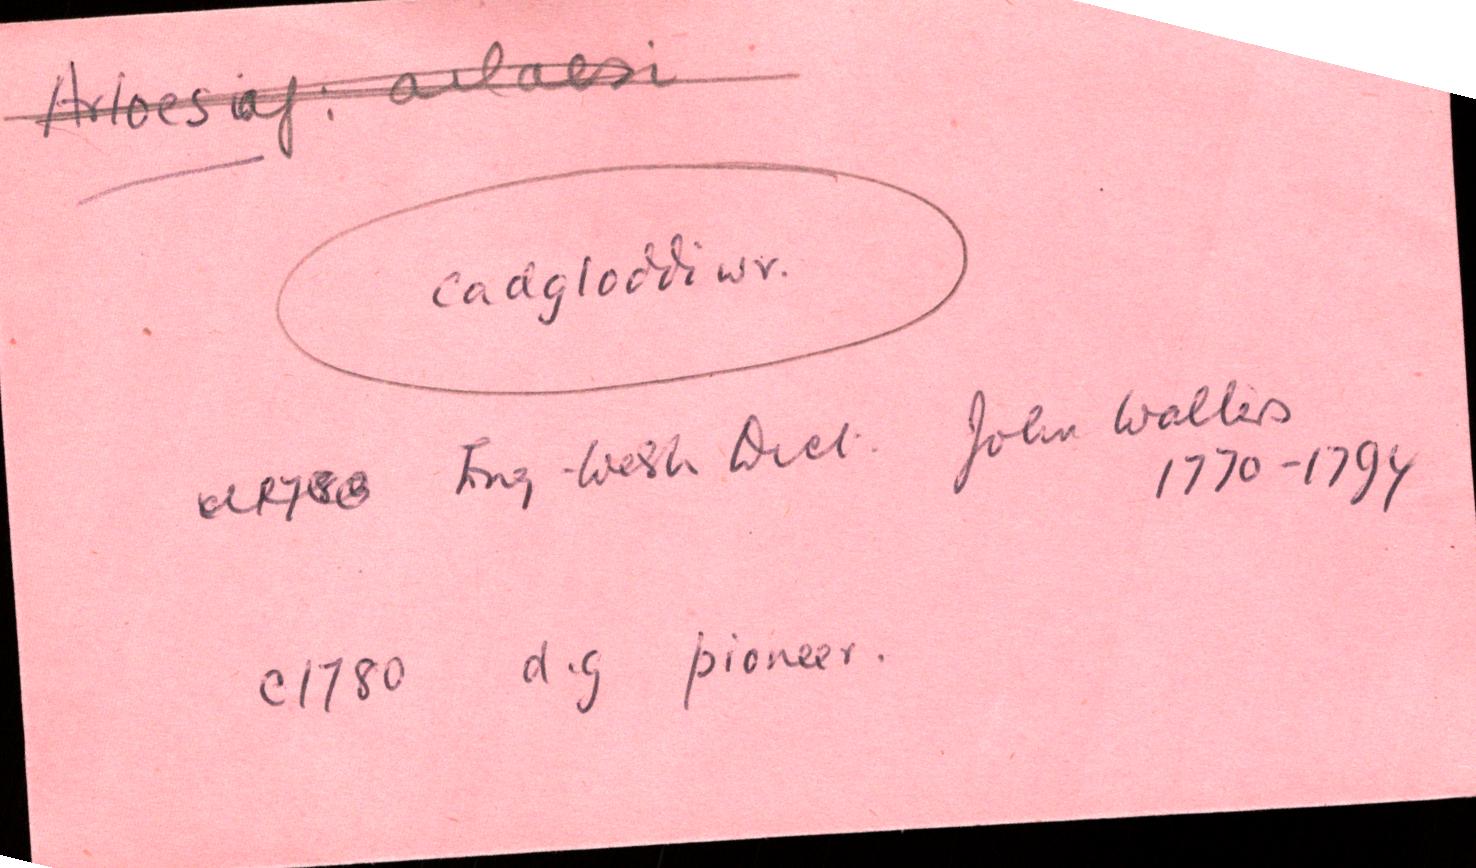 Arloesiaf: arloesi
cadgloddiwr.
c1788 Eng-Welsh Dict. John Walters
1770-1794
c1780 d.g pioneer.